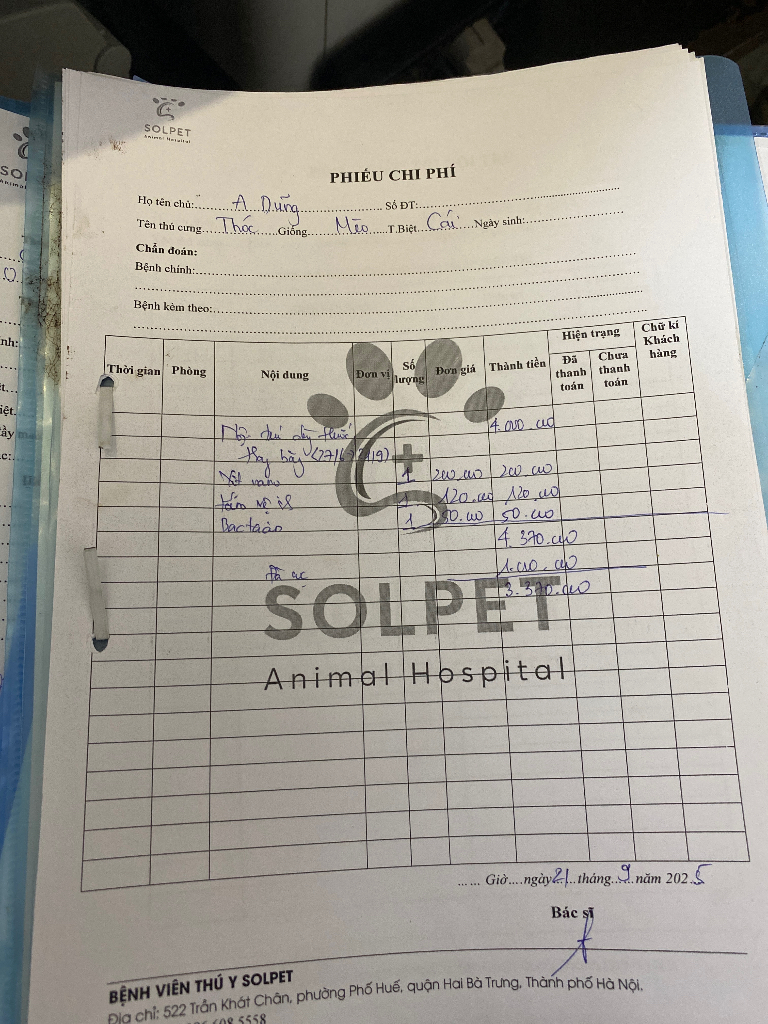 SOLPET
Animal Hospital
PHIẾU CHI PHÍ
Họ tên chủ: A Dũng Số ĐT:
Tên thú cưng Thóc Giống Mèo T.Biệt Cái Ngày sinh:
Chẩn đoán:
Bệnh chính:
Bệnh kèm theo:
Thời gian Phòng Nội dung Đơn vị Số lượng Đơn giá Thành tiền Hiện trạng Đã thanh toán Chưa thanh toán Chữ kí Khách hàng
4.000.000
1 200.000 200.000
1 120.000 120.000
1 50.000 50.000
4.370.000
1.000.000
3.370.000
SOLPET
Animal Hospital
...... Giờ....ngày 21 tháng 9 năm 2025
Bác sĩ
BỆNH VIÊN THÚ Y SOLPET
Địa chỉ: 522 Trần Khát Chân, phường Phố Huế, quận Hai Bà Trưng, Thành phố Hà Nội.
608 5558